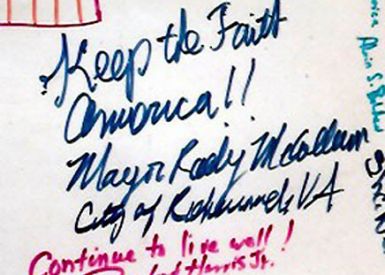 Keep the Faith
America!!
Mayor Rudy McCollum
City of Richmond, VA
Continue to live well!
Harris Jr.